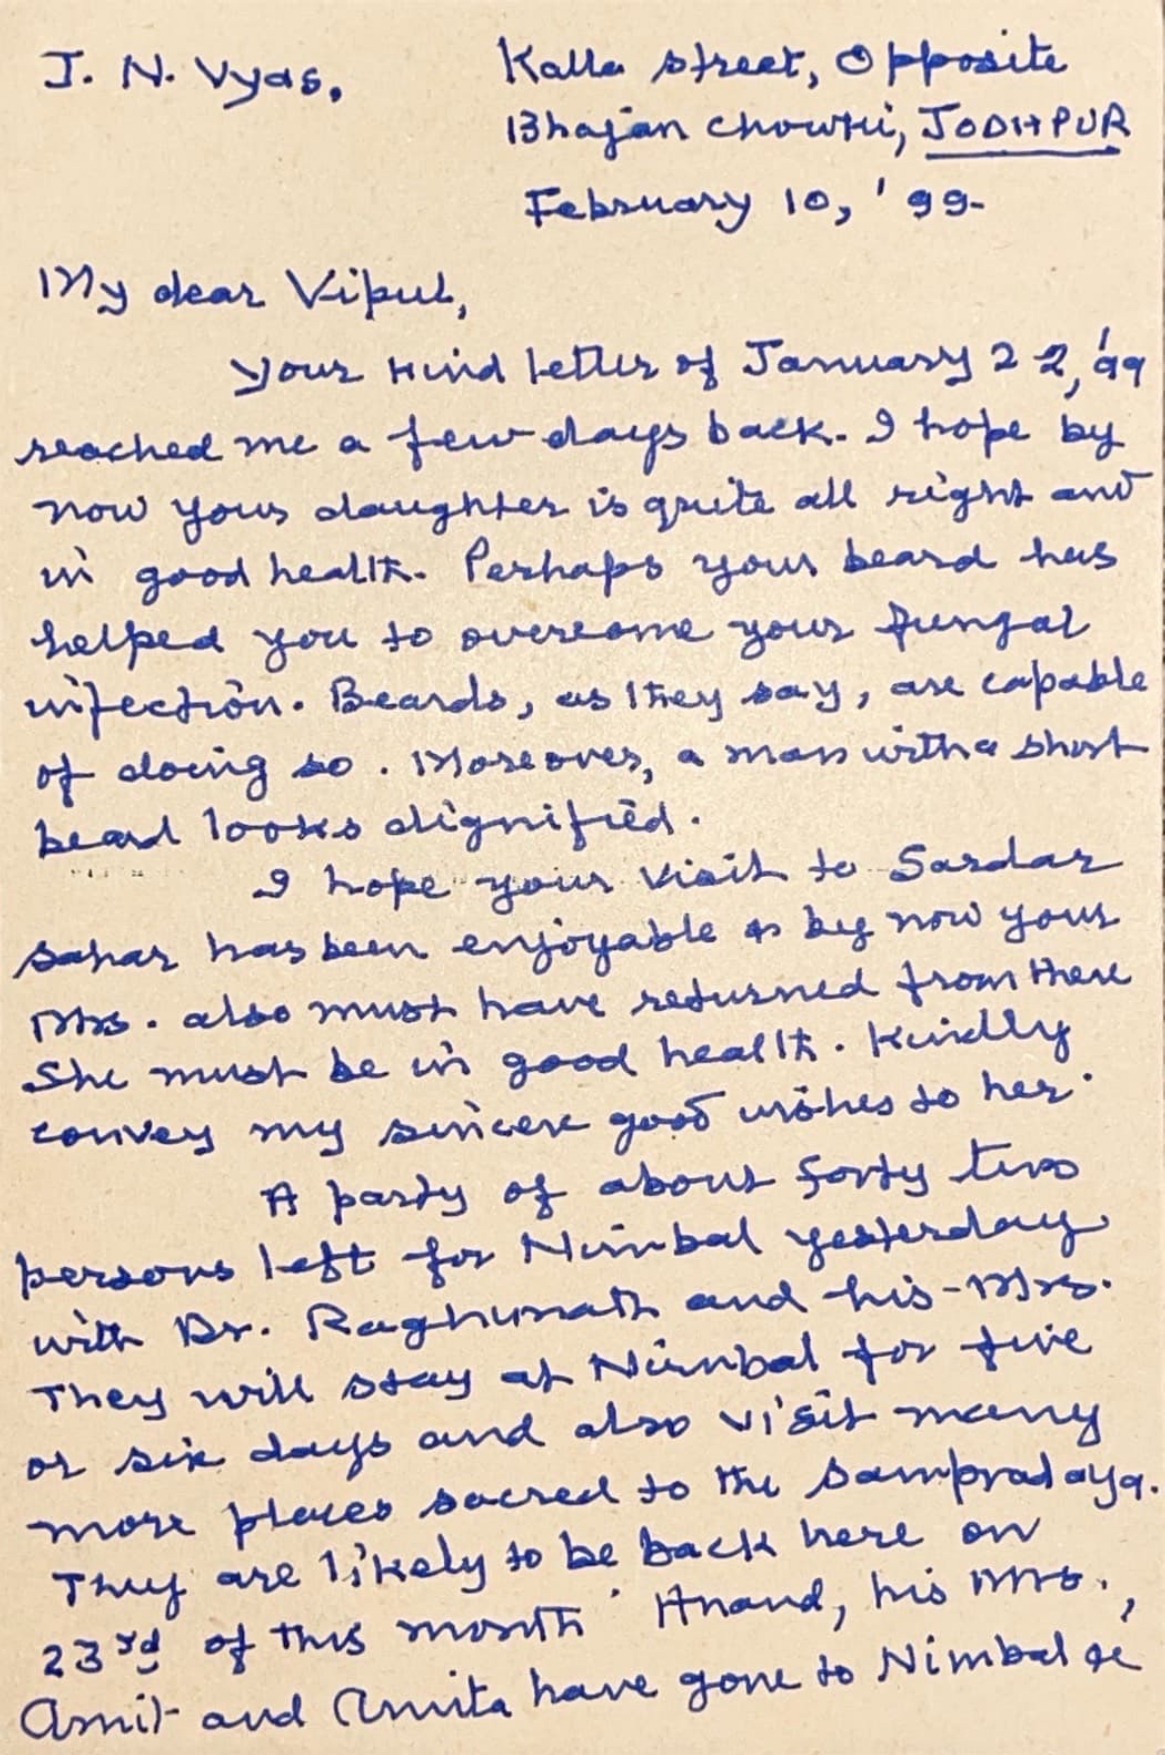 J. N. Vyas.
Kalla street, Opposite
Bhajan chowki, JODHPUR
February 10, '99-
My dear Vipul,
Your kind letter of January 22, '99
reached me a few days back. I hope by
now your daughter is quite all right and
in good health. Perhaps your beard has
helped you to overcome your fungal
infection. Beards, as they say, are capable
of doing so. Moreover, a man with a short
beard looks dignified.
I hope your visit to Sardar
sahar has been enjoyable & by now your
Mrs. also must have returned from there
She must be in good health. Kindly
convey my sincere good wishes to her.
A party of about forty two
persons left for Nimbal yesterday
with Dr. Raghunath and his - Mrs.
They will stay at Nimbal for five
or six days and also visit many
more places sacred to the Sampradaya.
They are likely to be back here on
23rd of this month. Anand, his Mrs.,
Amit and Amita have gone to Nimbal